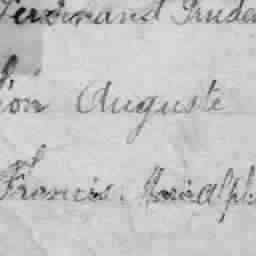 Ferdinand Prude
on Auguste
Francis.